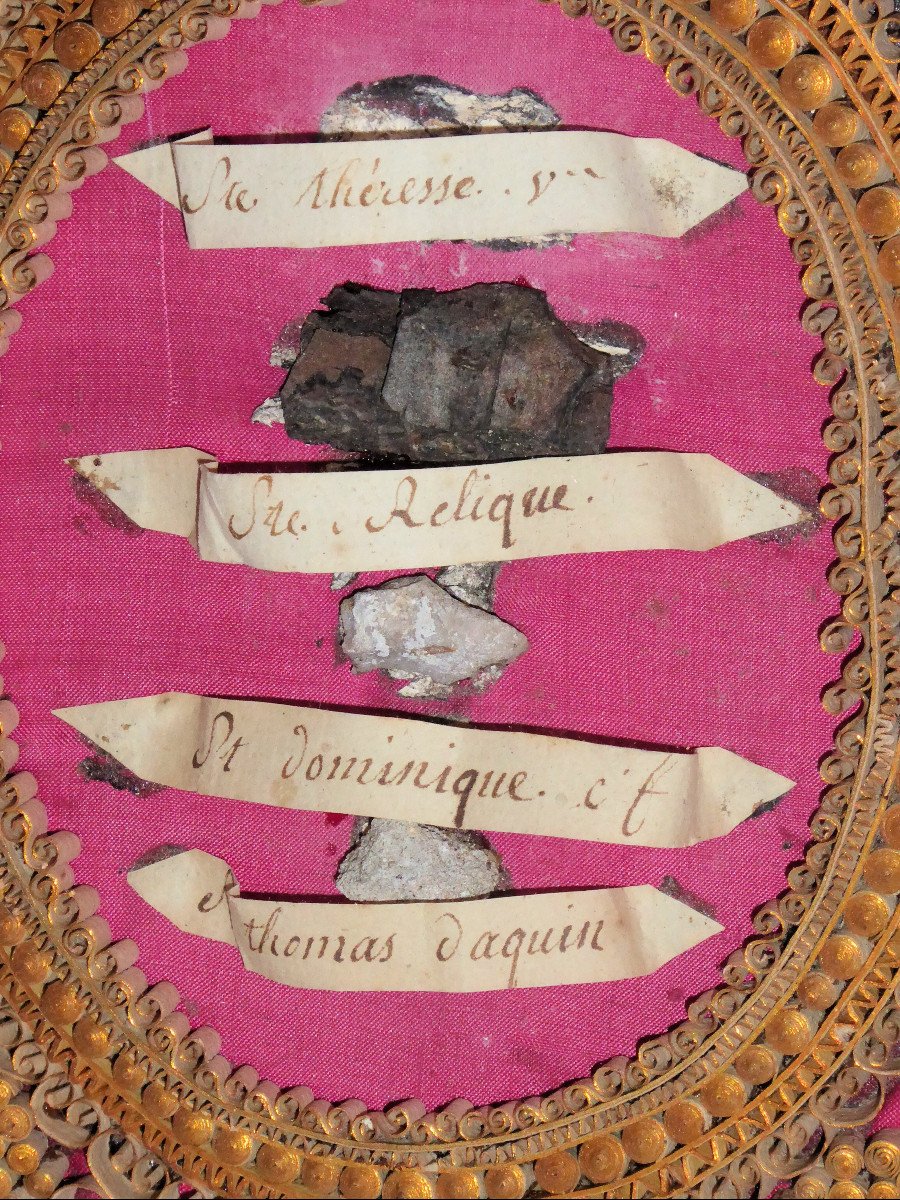 Ste théresse. v
Ste. Relique.
St dominique. c f
St thomas daquin